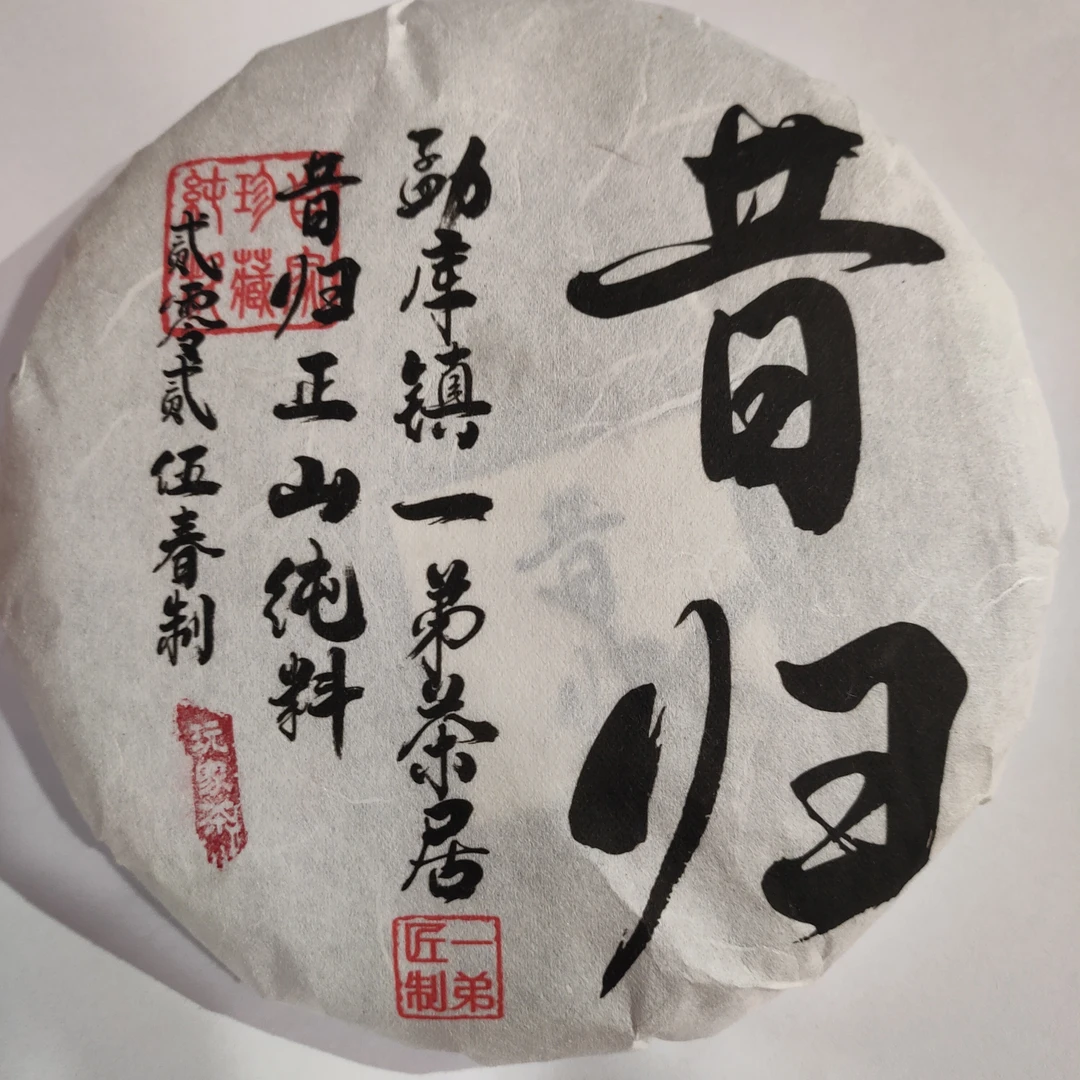 昔归
勐库镇一弟茶居
一弟匠制
昔归正山纯料
貳零貳伍春制
珍藏
純
玩家茶
昔